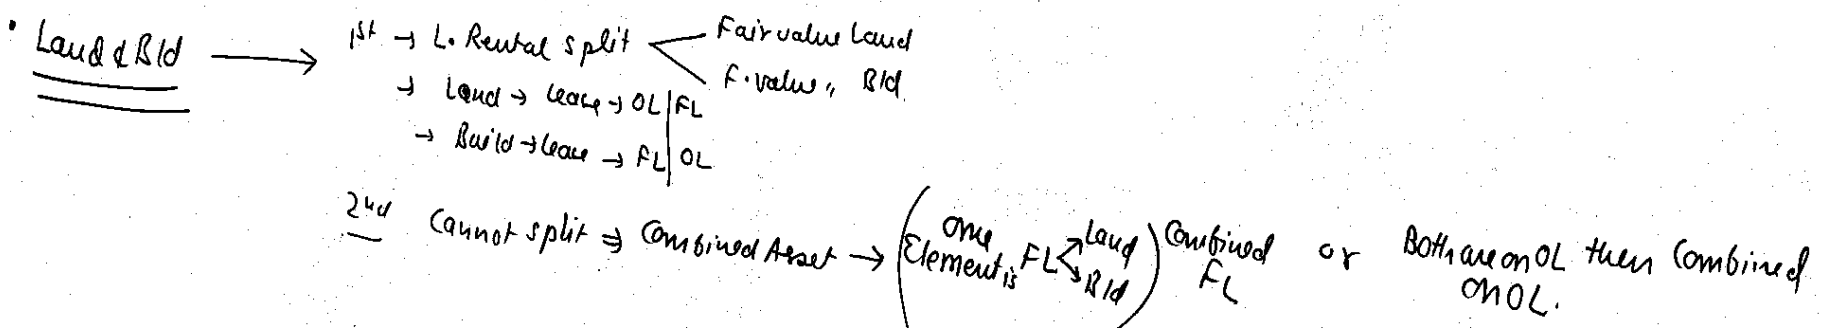 • Land & Bld → 1st → L. Rental split < Fair value Land
F. value „ Bld
→ Land → lease → OL | FL
→ Build → lease → FL | OL
2nd Cannot split ⇒ Combined Asset → ( One Element is FL < Land Bld ) Combined FL or Both are on OL then Combined on OL.